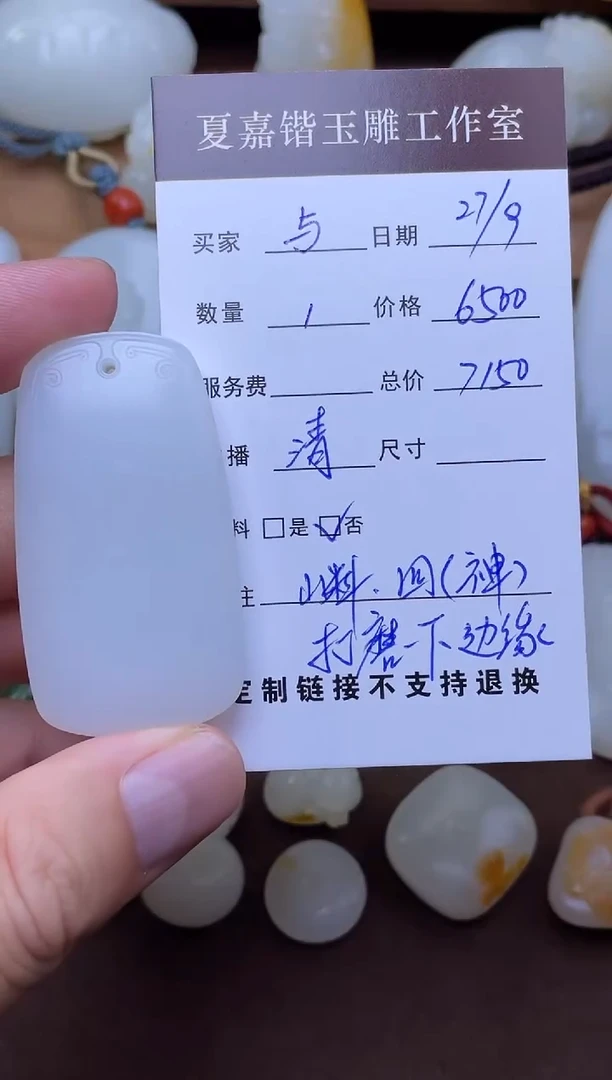 夏嘉锴玉雕工作室
买家 与 日期 27/9
数量 1 价格 6500
服务费 总价 7150
播 清 尺寸
料 □是 ☑否
注 山料.回(神)
打磨一下边缘
定制链接不支持退换